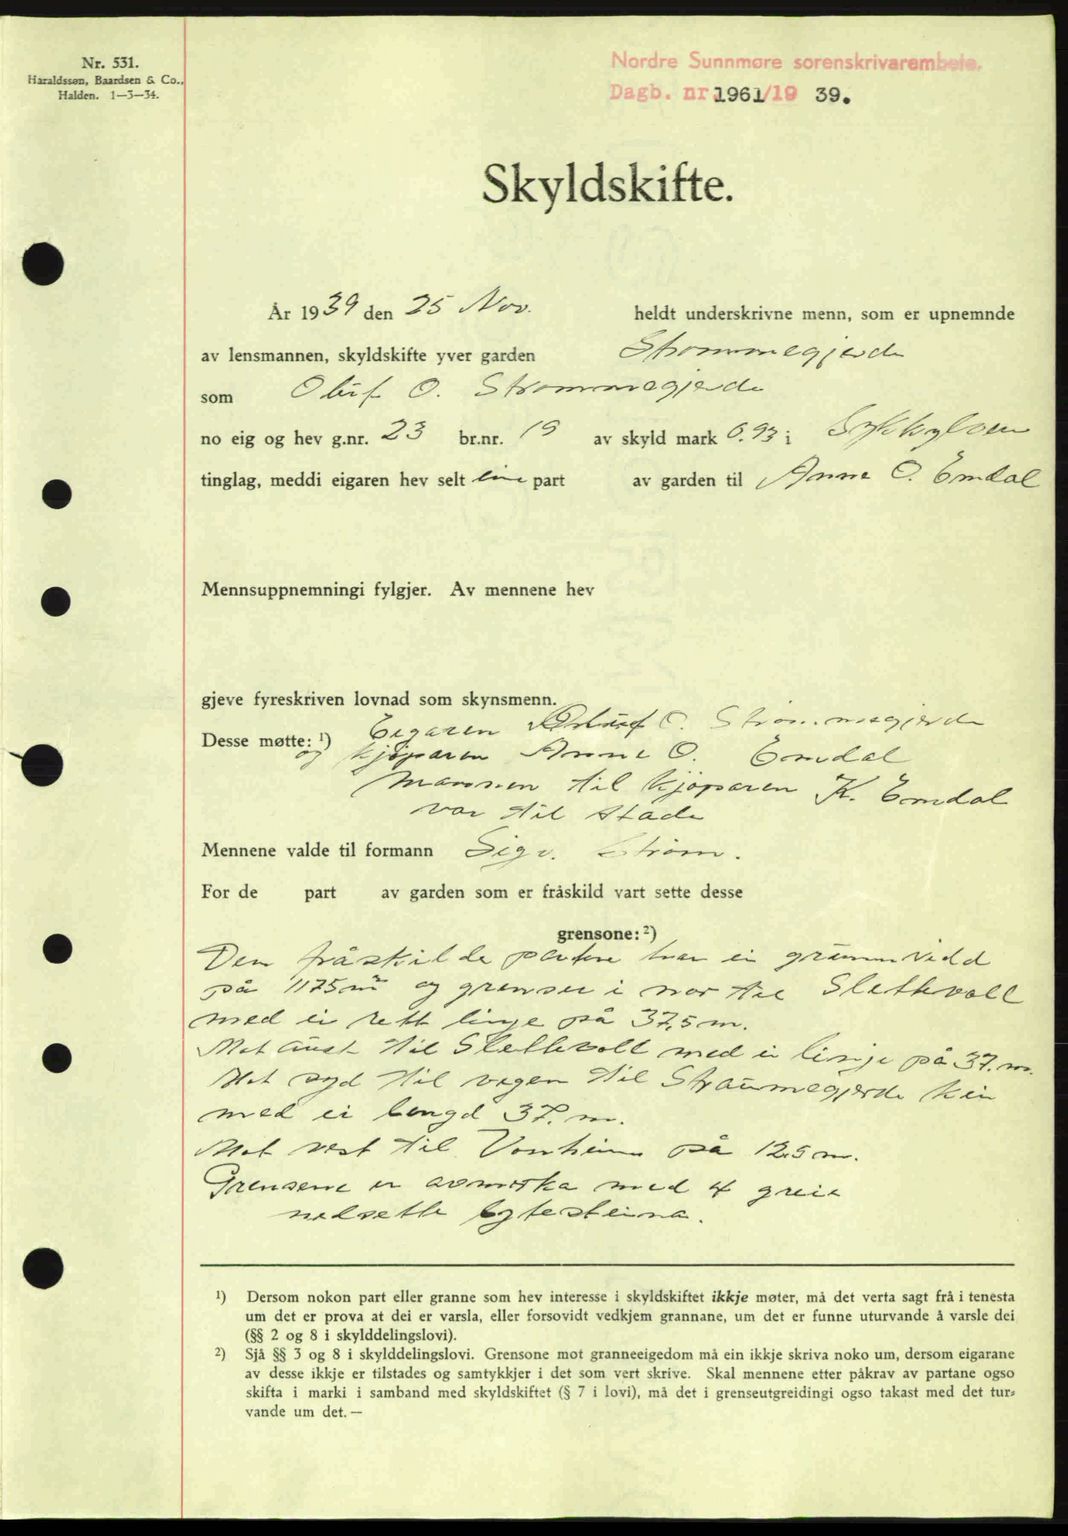 Nr. 531.
Haraldssøn, Baardsen & Co.,
Halden. 1—3—34.
Nordre Sunnmøre sorenskrivarembete.
Dagb. nr. 1961/19 39.
Skyldskifte.
År 1939 den 25 Nov. heldt underskrivne menn, som er upnemnde
av lensmannen, skyldskifte yver garden Strømmegjerde
som Oluf O. Strømmegjerde
no eig og hev g.nr. 23 br.nr. 19 av skyld mark 0.93 i Sykkylven
tinglag, meddi eigaren hev selt ein part av garden til Anne O. Emdal
Mennsuppnemningi fylgjer. Av mennene hev
gjeve fyreskriven lovnad som skynsmenn.
Desse møtte: ¹) Eigaren Oluf O. Strømmegjerde
og kjøparen Anne O. Emdal
Mannen til kjøparen K. Emdal
var til stade
Mennene valde til formann Sigv. Strøm.
For de part av garden som er fråskild vart sette desse
grensone: ²)
Den fråskilde parten har ei grunnvidd
på 1175 m² og grenser i nor til Slettevoll
med ei rett linje på 37,5 m.
Mot aust til Slettevoll med ei linje på 37. m.
Mot syd til vegen til Straumegjerde
med ei lengd 37. m.
Mot vest til Vonheim på 12.5 m.
Grensene er avmerka med 4 greie
nedsette bytesteina.
¹) Dersom nokon part eller granne som hev interesse i skyldskiftet ikkje møter, må det verta sagt frå i tenesta
um det er prova at dei er varsla, eller forsovidt vedkjem grannane, um det er funne uturvande å varsle dei
(§§ 2 og 8 i skylddelingslovi).
²) Sjå §§ 3 og 8 i skylddelingslovi. Grensone mot granneeigedom må ein ikkje skriva noko um, dersom eigarane
av desse ikkje er tilstades og samtykkjer i det som vert skrive. Skal mennene etter påkrav av partane ogso
skifta i marki i samband med skyldskiftet (§ 7 i lovi), må det i grenseutgreidingi ogso takast med det tur-
vande um det. —